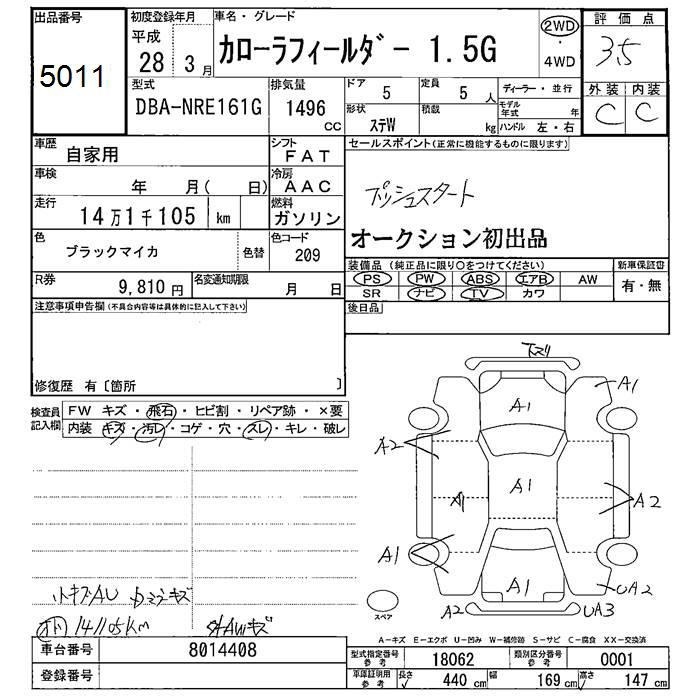 出品番号 初度登録年月 車名・グレード 2WD 評価点
5011 平成 28 3月 カローラフィールダー 1.5G ・ 4WD 3.5
型式 排気量 ドア 定員 ディーラー・並行 外装 内装
DBA-NRE161G 1496 CC 5 5人 モデル年式 年 C C
形状 ステW 積載 kg ハンドル 左・右
車歴 自家用 シフト FAT セールスポイント(正常に機能するものに限ります)
車検 年 月( 日) 冷房 AAC プッシュスタート
走行 14万1千105 km 燃料 ガソリン
色 ブラックマイカ 色替 色コード 209 オークション初出品
R券 9,810円 名変通知期限 月 日 装備品(純正品に限り○をつけてください) 新車保証書
PS PW ABS エアB AW 有・無
SR ナビ TV カワ
注意事項申告欄(不具合内容等は具体的に記入して下さい) 後日品
修復歴 有〔箇所 〕
検査員記入欄 FW キズ・飛石・ヒビ割・リペア跡・×要
内装 キズ・汚レ・コゲ・穴・スレ・キレ・破レ
下スリ
A1 A1
A2
A1 A1 A2
A1
A1 UA2
A2 UA3
スペア
小キズAU
141105KM
A-キズ E-エクボ U-凹み W-補修跡 S-サビ C-腐食 XX-交換済
車台番号 8014408 型式指定番号 参考 18062 類別区分番号 参考 0001
登録番号 車庫証明用 参考 長さ 440 cm 幅 169 cm 高さ 147 cm